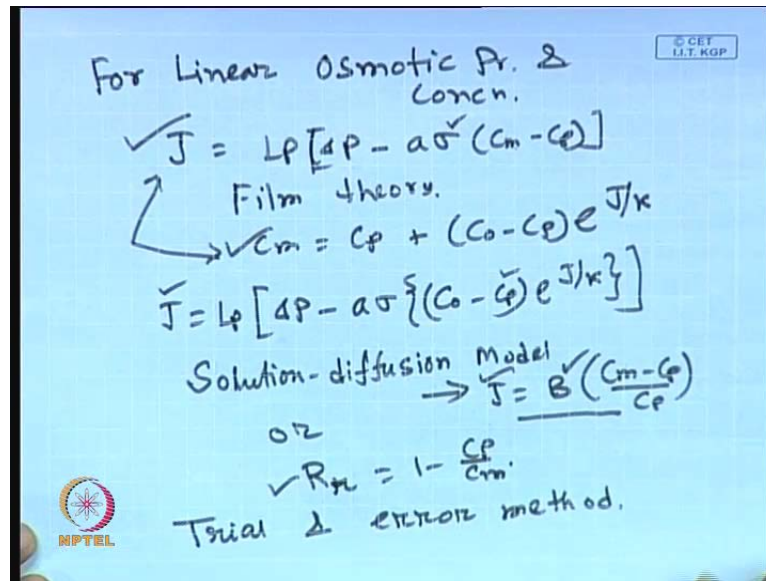 © CET
I.I.T. KGP
For Linear Osmotic Pr. &
Concn.
✓J = LP [ΔP - aσ✓ (Cm - Cp)]
Film theory.
✓Cm = Cp + (Co - Cp) e^J/K
J✓ = Lp [ΔP - aσ {(Co - Cp✓) e^J/K}]
Solution-diffusion Model
→ J✓ = B✓ (Cm - Cp / Cp)
or
✓Rr = 1 - Cp/Cm.
Trial & error method.
NPTEL